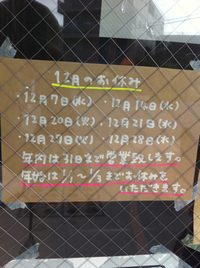 12月のお休み
・12月7日(水)・12月14日(水)
・12月20日(火)・12月21日(水)
・12月27日(火)・12月28日(水)
年内は31日まで営業致します。
年始は1/1〜1/3までお休みを
いただきます。